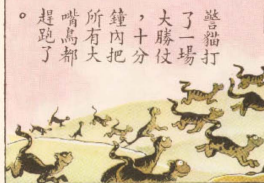 警貓打
了一場
大勝仗
，十分
鐘內把
所有大
嘴鳥都
趕跑了
。